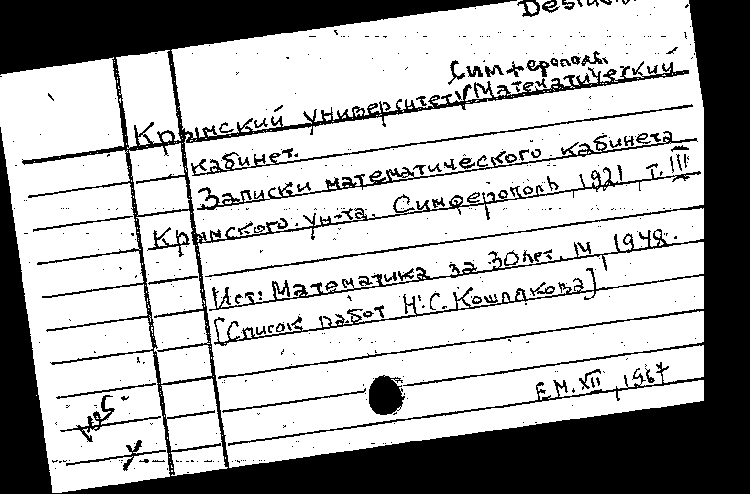 Симферополь.
Крымский университет. Математический
кабинет.
Записки математического кабинета
Крымского ун-та. Симферополь, 1921, т. III
Ист: Математика за 30 лет. М, 1948.
[Список работ Н.С. Кошлякова]
Е М. XII, 1967